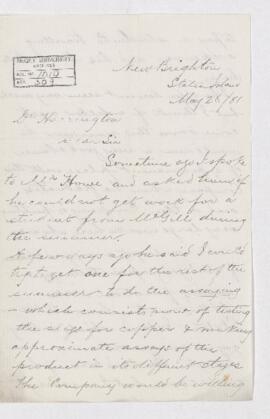 McGILL UNIVERSITY
ARCHIVES
ACC. NO. 1010
REF. 309
New Brighton
Staten Island
May 26/81
Dr Harrington
Dear Sir
Sometime ago I spoke
to Mr Howe and asked him if
he could not get work for a
student from McGill during
the summer.
A few days ago he said I could
get one for the rest of the
summer to do the assaying
– which consists most of testing
the slags for copper & making
approximate assays of the
product in its different stages
The Company would be willing